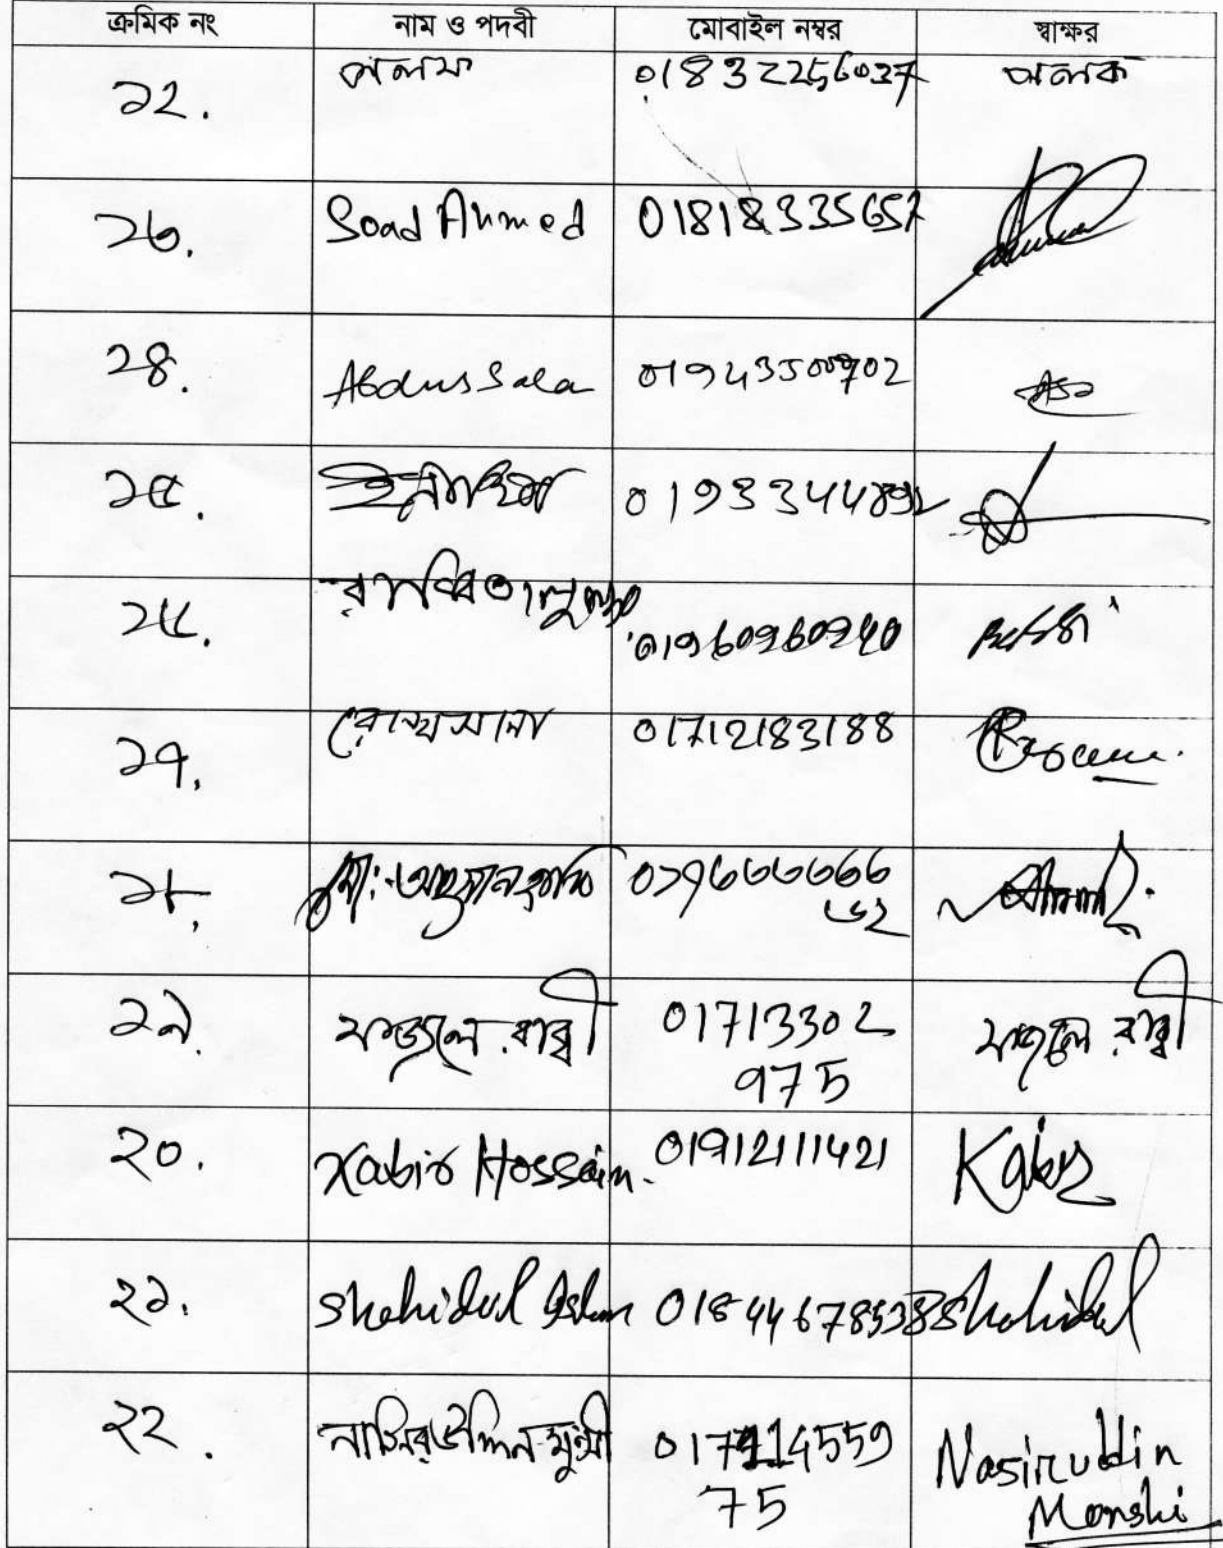 ক্রমিক নং নাম ও পদবী মোবাইল নম্বর স্বাক্ষর
১২. পলক
১৩. Soad Ahmed 01818335657
১৪. Abdus Sala 01943500702
১৫. 0193344
১৬. রাব্বি তালুকদার 01960960940
১৭. রোখসানা 01712183188
১৮. মোঃ আহসান হাবিব ০১৭৬৬৬৬৬৬
৬২
১৯. ফজলে রাব্বী 01713302 ফজলে রাব্বী
975
২০. Kabir Hossain. 01912111421 Kabir
২১. Shahidul Islam 01844678538 Shahidul
২২. নাসিরউদ্দিন মুন্সী 017 14559 Nasiruddin
75 Monshi